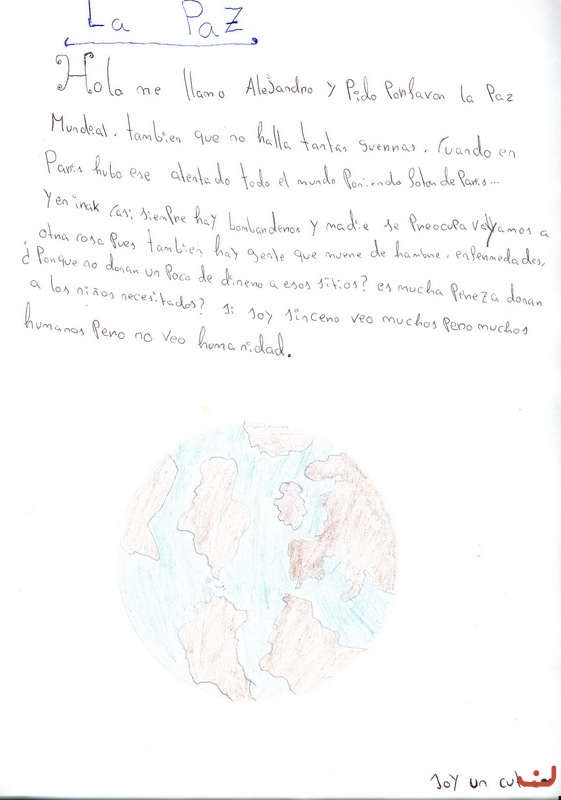 La Paz
Hola me llamo Alejandro y Pido Porfavor la Paz
Mundeal. tambien que no halla tantas guerras. Cuando en
Paris hubo ese atentado todo el mundo Poniendo de Paris...
y en irak casi siempre hay bombarderos y nadie se Preocupa vayamos a
otra cosa Pues tambien hay gente que muere de hambre, enfermedades,
¿Porque no donan un Poco de dinero a esos sitios? es mucha Pereza donar
a los niños necesitados? Si soy sincero veo muchos Pero muchos
humanos Pero no veo humanidad.
Soy un